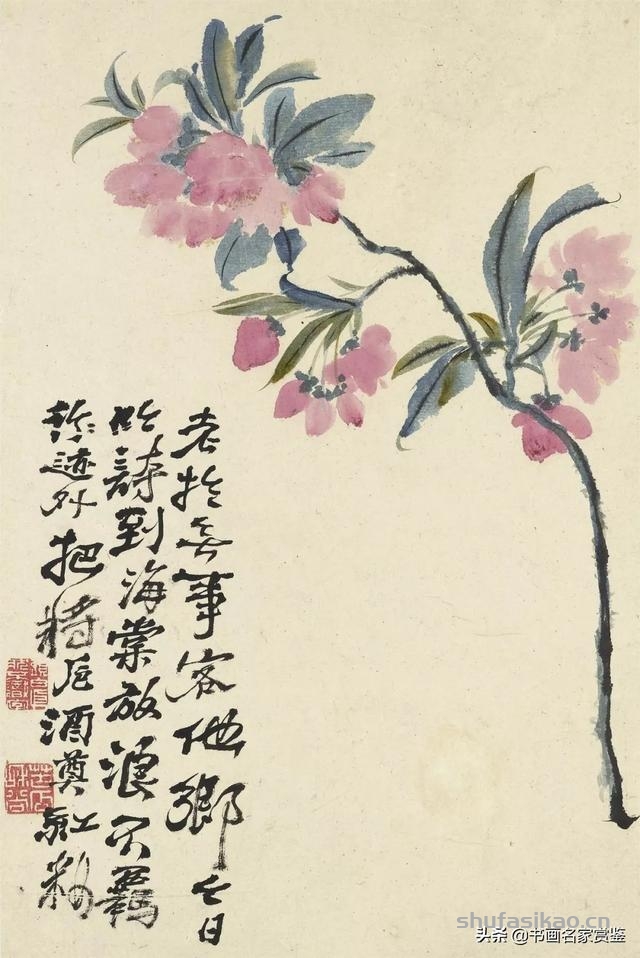 老於無事客他鄉今日
吟詩到海棠放浪不羈
形迹外把將卮酒奠紅粧
shufasikao.cn
头条 @书画名家赏鉴